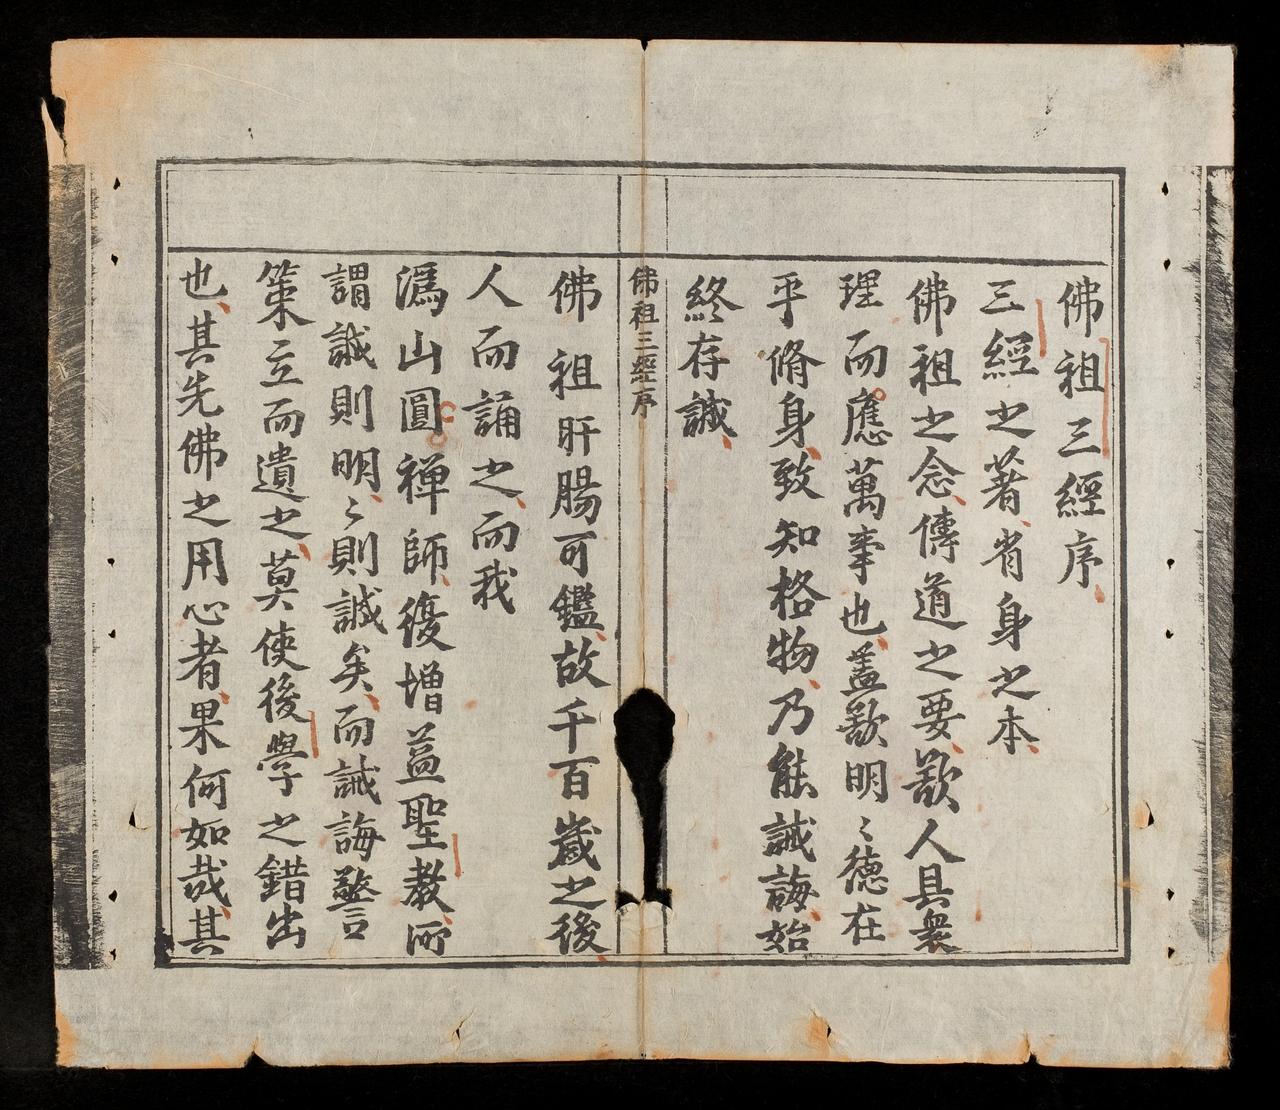 佛祖三經序
三經之著省身之本
佛祖之念傳道之要歟人具衆
理而應萬事也盖歎明〻德在
乎脩身致知格物乃能誠誨始
終存誠
佛祖三經序
佛祖肝腸可鑑故千百歲之後
人而誦之而我
潙山圓禅師復增益聖教所
謂誠則明〻則誠矣而誡誨警
策立而遺之莫使後學之錯出
也其先佛之用心者果何如哉其